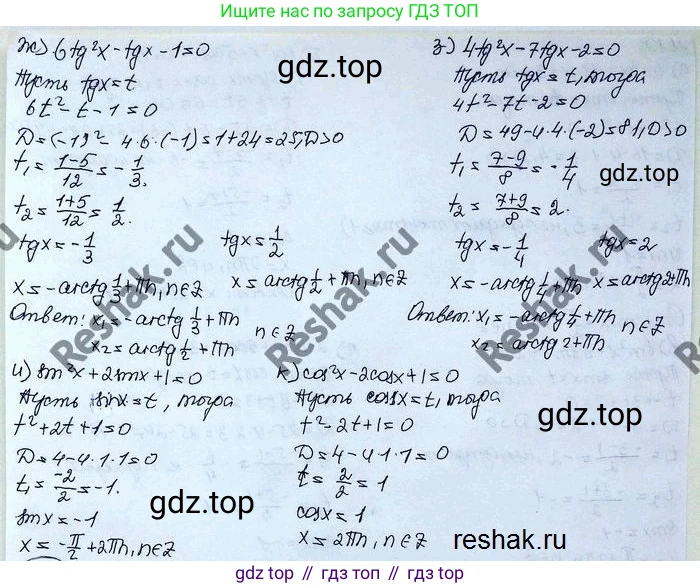 Ищите в интернете по
запросу ГДЗ ТОП
ж) 6tg²x-tgx-1=0
Пусть tgx=t
6t²-t-1=0
D=(-1)²-4·6·(-1)=1+24=25, D>0
t₁=(1-5)/12=-1/3.
t₂=(1+5)/12=1/2.
tgx=-1/3 tgx=1/2
x=-arctg 1/3+πn, n∈Z x=arctg 1/2+πn, n∈Z
Ответ: x₁=-arctg 1/3+πn
x₂=arctg 1/2+πn n∈Z
з) 4tg²x-7tgx-2=0
Пусть tgx=t, тогда
4t²-7t-2=0
D=49-4·4·(-2)=81, D>0
t₁=(7-9)/8=-1/4
t₂=(7+9)/8=2.
tgx=-1/4 tgx=2
x=-arctg 1/4+πn x=arctg2+πn
Ответ: x₁=-arctg 1/4+πn
x₂=arctg2+πn n∈Z
и) sin²x+2sinx+1=0
Пусть sinx=t, тогда
t²+2t+1=0
D=4-4·1·1=0
t₁=-2/2=-1.
sinx=-1
x=-π/2+2πn, n∈Z
к) cos²x-2cosx+1=0
Пусть cosx=t, тогда
t²-2t+1=0
D=4-4·1·1=0
t=2/2=1
cosx=1
x=2πn, n∈Z
gdz.top
gdz.top
gdz.top
gdz.top
Reshak.ru
Reshak.ru
Reshak.ru
www.gdz.top
gdz.top // gdz.top // gdz.top